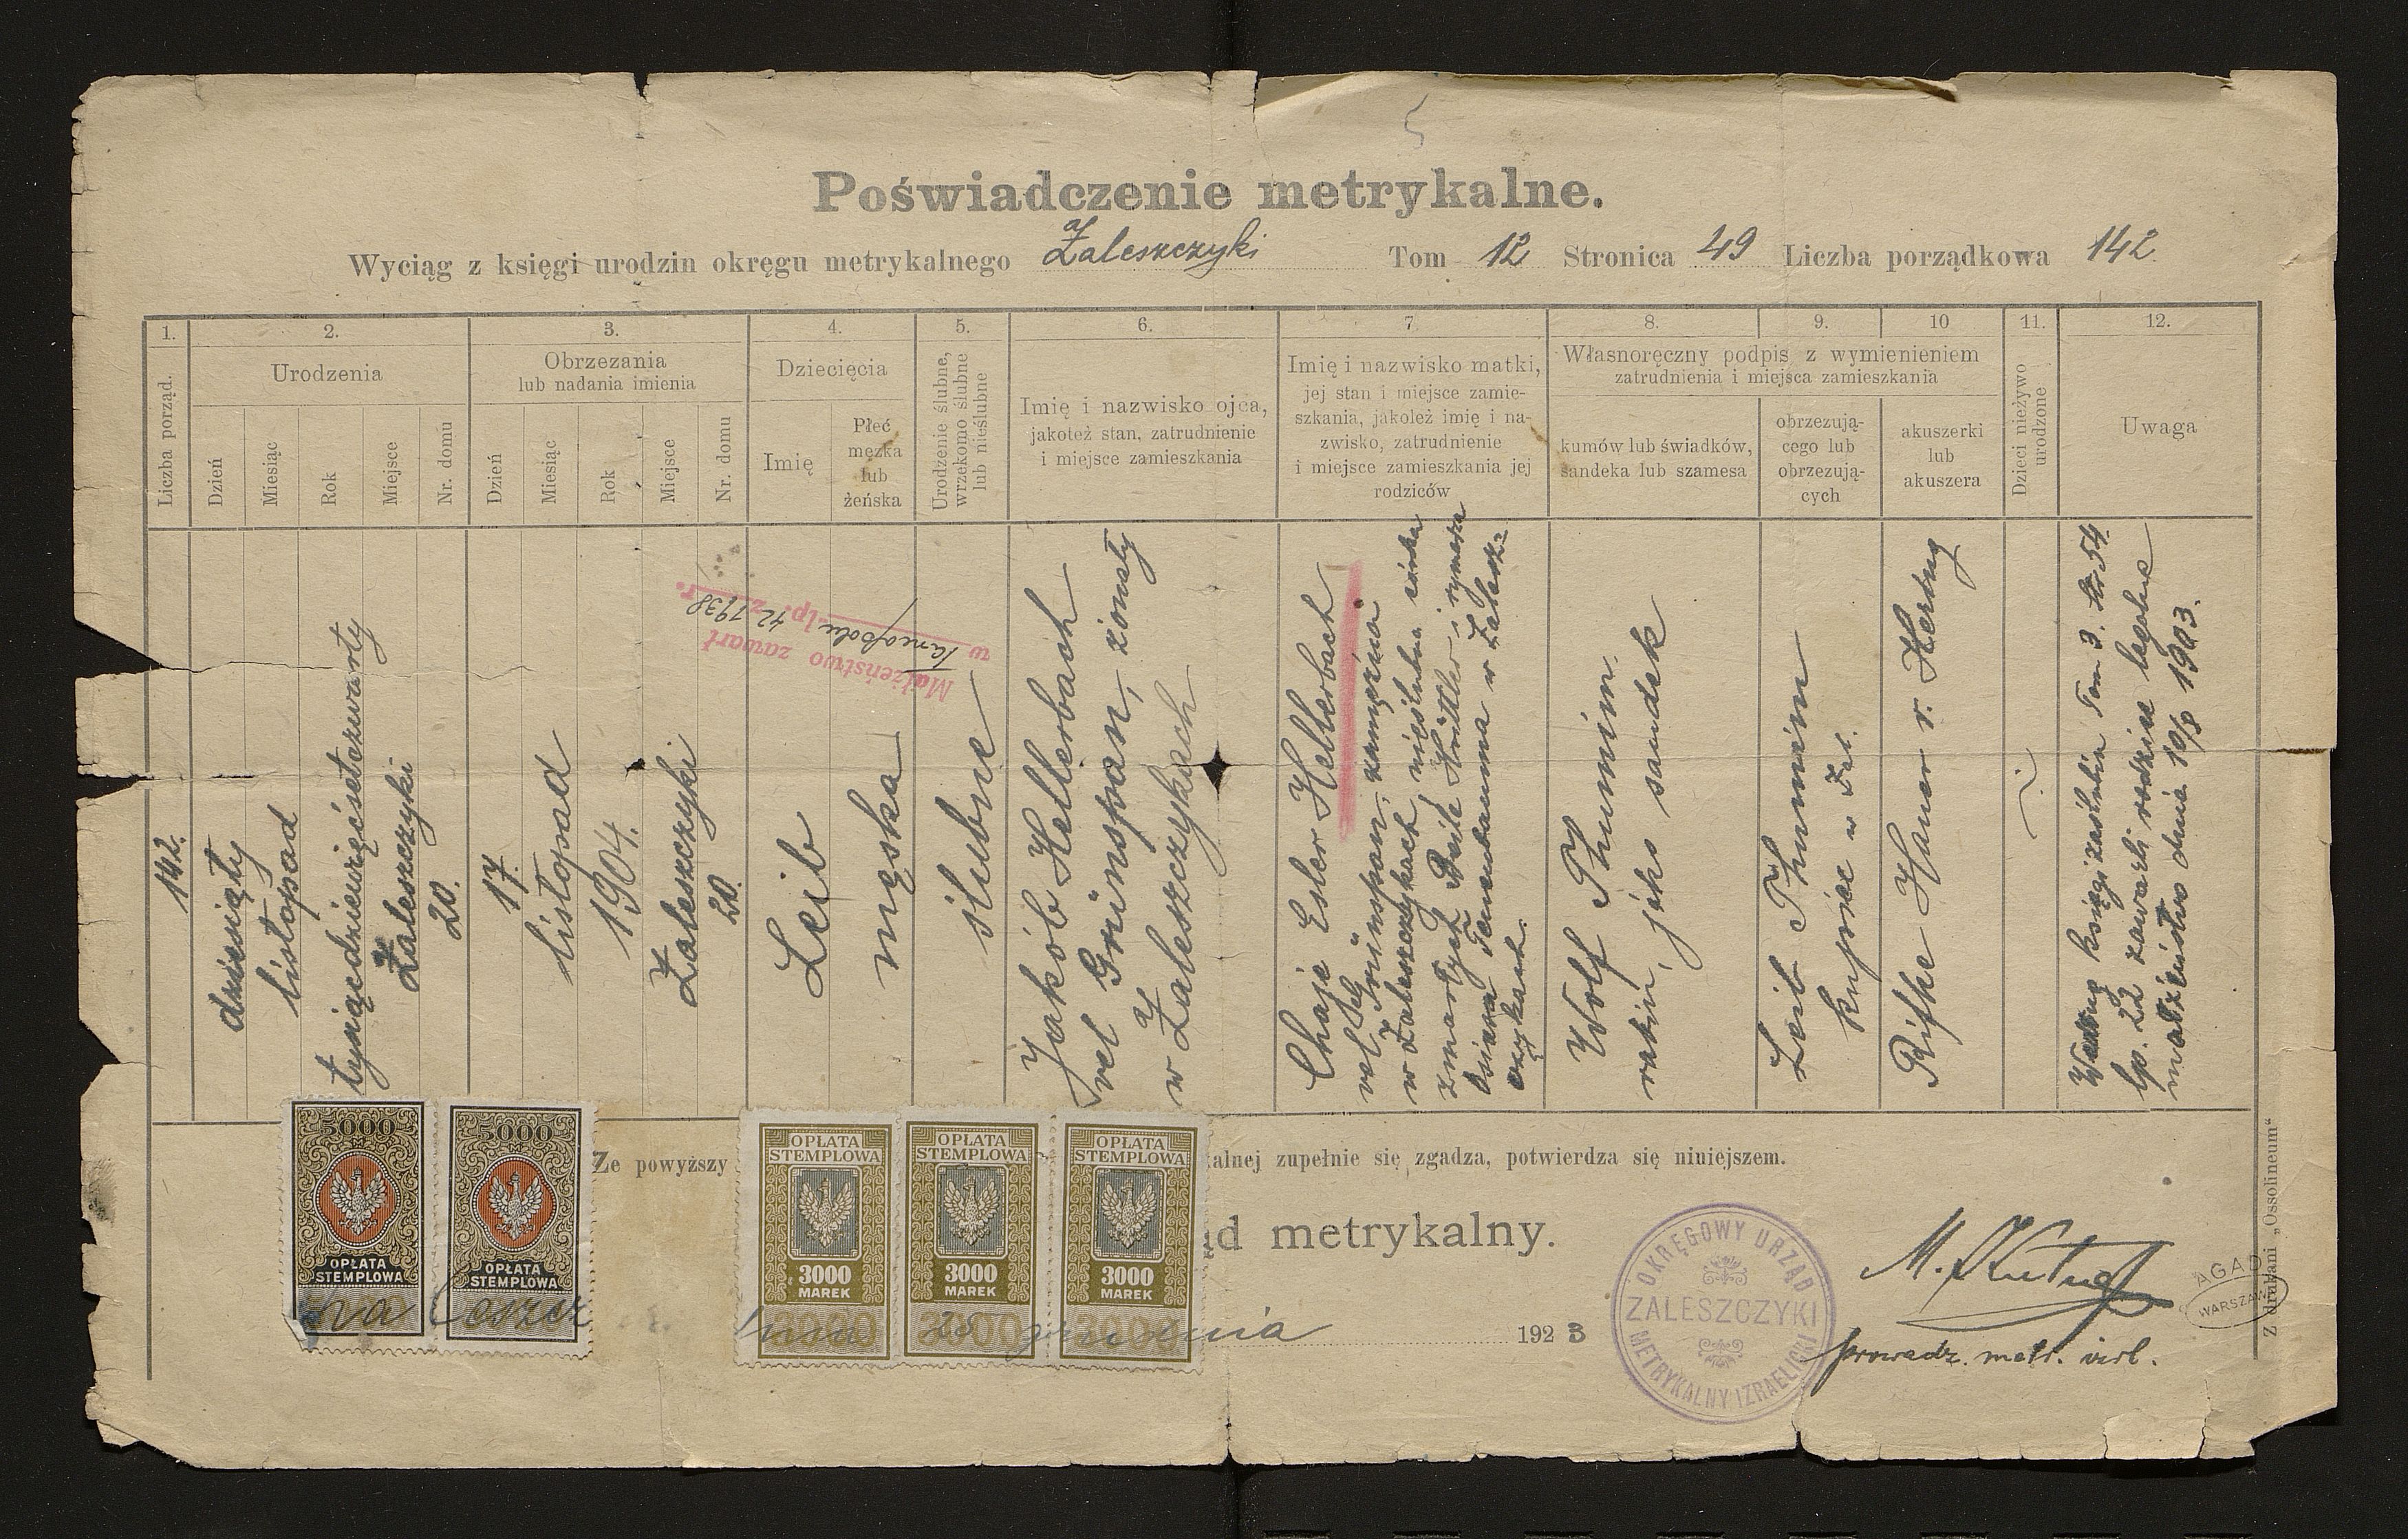 Poświadczenie metrykalne.
Wyciąg z księgi urodzin okręgu metrykalnego Zaleszczyki Tom 12 Stronica 49 Liczba porządkowa 142
1.
Liczba porząd.
2.
Urodzenia
Dzień
Miesiąc
Rok
Miejsce
Nr. domu
3.
Obrzezania
lub nadania imienia
Dzień
Miesiąc
Rok
Miejsce
Nr. domu
4.
Dziecięcia
Imię
Płeć
męzka
lub
żeńska
5.
Urodzenie ślubne,
wrzekomo ślubne
lub nieślubne
6.
Imię i nazwisko ojca,
jakoteż stan, zatrudnienie
i miejsce zamieszkania
7.
Imię i nazwisko matki,
jej stan i miejsce zamie-
szkania, jakoleż imię i na-
zwisko, zatrudnienie
i miejsce zamieszkania jej
rodziców
8.
9.
10
Własnoręczny podpis z wymienieniem
zatrudnienia i miejsca zamieszkania
kumów lub świadków,
sandeka lub szamesa
obrzezują-
cego lub
obrzezują-
cych
akuszerki
lub
akuszera
11.
Dzieci nieżywo
urodzone
12.
Uwaga
142.
dziesiąty
listopad
tysiącdziewięćsetczwarty
Zaleszczyki
20.
17.
listopad
1904.
Zaleszczyki
20.
Leib
męska
ślubne
Małżeństwo zawart
w Tarnopolu
lp. z r.
12 1938
Jakób Hellerbach
vel Grünspan, żonaty
w Zaleszczykach
Chaje Ester Hellerbach
vel Grünspan, zamężna
w Zaleszczykach, nieślubna córka
zmarłych Beile Hüttler i rymarza
Osiera Tannenbauma w Zalesz-
czykach.
Wolf Thumim
rabin, jako sandek
Leib Thumim
kupiec w Zal.
Rifke Hamer r. Hertug
Według księgi zaślubin Tom 3. str. 54
lp. 22 zawarli rodzice legalne
małżeństwo dnia 10/8 1903.
Że powyższy
alnej zupełnie się zgadza, potwierdza się niniejszem.
d metrykalny.
5000
OPŁATA
STEMPLOWA
5000
OPŁATA
STEMPLOWA
OPŁATA
STEMPLOWA
3000
MAREK
3000
OPŁATA
STEMPLOWA
3000
MAREK
3000
OPŁATA
STEMPLOWA
3000
MAREK
3000
dnia 20 grudnia 1923
OKRĘGOWY URZĄD
ZALESZCZYKI
METRYKALNY IZRAELICKI
prowadz. metr. izrl.
AGAD
WARSZAWA
Z drukarni „Ossolineum“